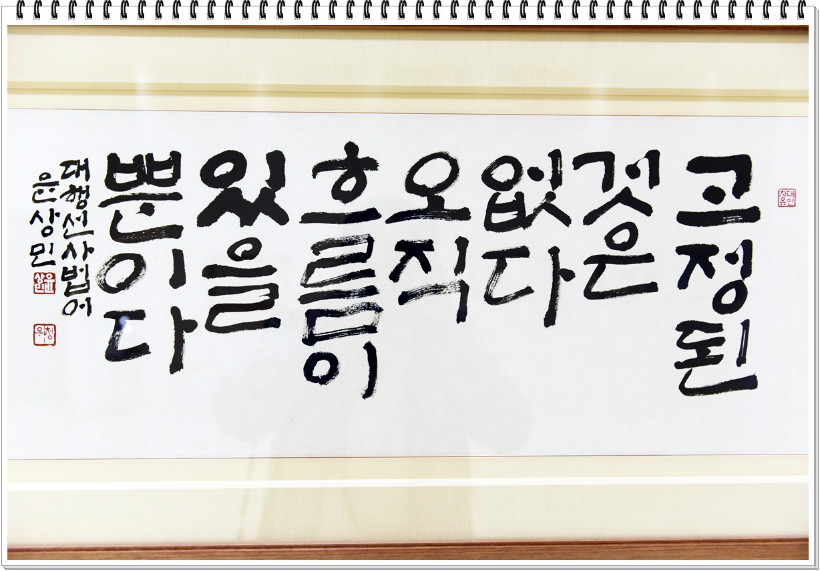 고정된
것은
없다
오직
흐름이
있을
뿐이다
대행선사법어
윤상민